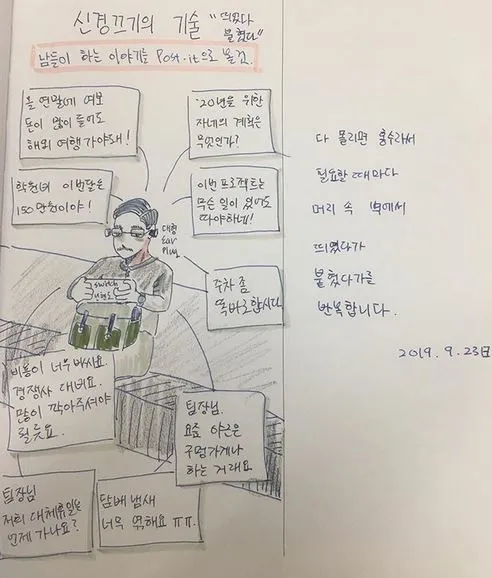 신경끄기의 기술 "띄었다
붙혔다"
남들이 하는 이야기는 Post.it으로 볼것.
올 연말에 여보
돈이 많이 들어도
해외 여행 가야돼!
'20년을 위한
자네의 계획은
무엇인가?
학원비 이번달은
150만원이야!
이번 프로젝트는
무슨 일이 있어도
따야하네!
대형
Ear
Plug
switch
주차 좀
똑바로합시다
비용이 너무 비싸요.
경쟁사 대비요.
많이 깍아주셔야
될듯요.
팀장님.
요즘 야근은
구멍가게나
하는 거래요
팀장님
저희 대체휴일은
언제 가나요?
담배 냄새
너무 역해요 ㅠㅠ.
다 몰리면 홍수라서
필요할 때마다
머리 속 벽에서
띄었다가
붙혔다가를
반복합니다.
2019. 9. 23日